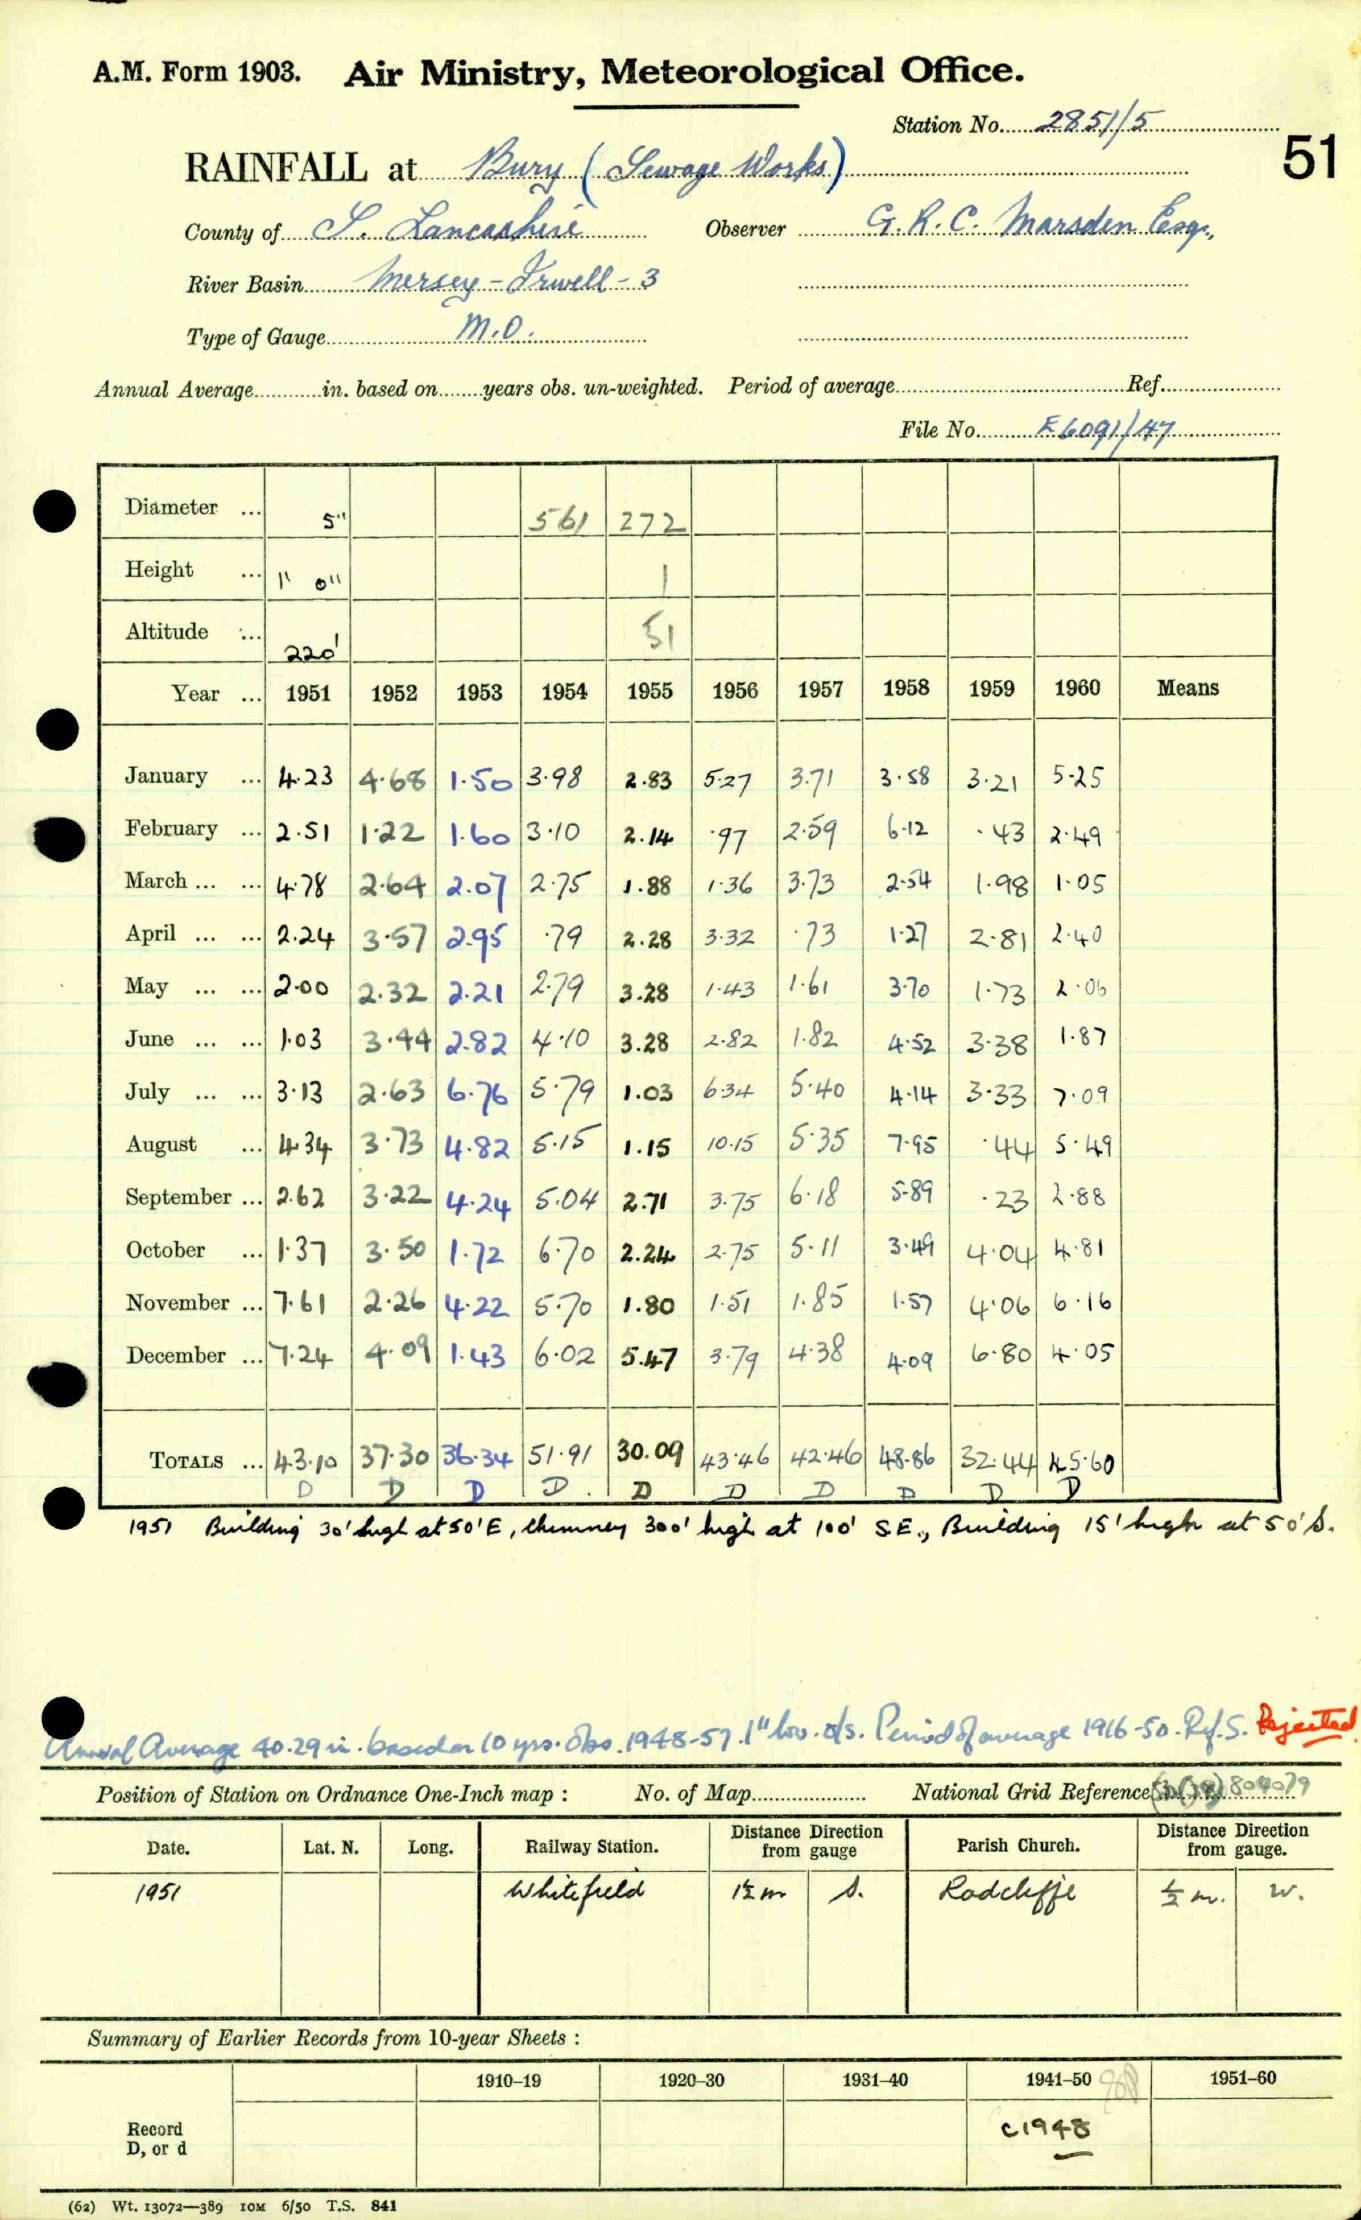 A.M. Form 1903. Air Ministry, Meteorological Office.
Station No. 2851/5
51
RAINFALL at Bury (Sewage Works)
County of S. Lancashire Observer G. R. C. Marsden Esq.,
River Basin Mersey - Irwell - 3
Type of Gauge M.O.
Annual Average in. based on years obs. un-weighted. Period of average Ref.
File No. E6091/47
Diameter ... 5" 561 272
Height ... 1' 0" 1
Altitude ... 220' 51
Year ... 1951 1952 1953 1954 1955 1956 1957 1958 1959 1960 Means
January ... 4.23 4.68 1.50 3.98 2.83 5.27 3.71 3.58 3.21 5.25
February ... 2.51 1.22 1.60 3.10 2.14 .97 2.59 6.12 .43 2.49
March ... ... 4.78 2.64 2.07 2.75 1.88 1.36 3.73 2.54 1.98 1.05
April ... ... 2.24 3.57 2.95 .79 2.28 3.32 .73 1.27 2.81 2.40
May ... ... 2.00 2.32 2.21 2.79 3.28 1.43 1.61 3.70 1.73 2.06
June ... ... 1.03 3.44 2.82 4.10 3.28 2.82 1.82 4.52 3.38 1.87
July ... ... 3.13 2.63 6.76 5.79 1.03 6.34 5.40 4.14 3.33 7.09
August ... 4.34 3.73 4.82 5.15 1.15 10.15 5.35 7.95 .44 5.49
September ... 2.62 3.22 4.24 5.04 2.71 3.75 6.18 5.89 .23 2.88
October ... 1.37 3.50 1.72 6.70 2.24 2.75 5.11 3.49 4.04 4.81
November ... 7.61 2.26 4.22 5.70 1.80 1.51 1.85 1.57 4.06 6.16
December ... 7.24 4.09 1.43 6.02 5.47 3.79 4.38 4.09 6.80 4.05
TOTALS ... 43.10 37.30 36.34 51.91 30.09 43.46 42.46 48.86 32.44 45.60
D D D D D D D D D D
1951 Building 30' high at 50' E, chimney 300' high at 100' S.E., Building 15' high at 50' S.
Annual Average 40.29 in. based on 10 yrs. Obs. 1948-57. 1" Period of average 1916-50. Ref. S. Rejected.
Position of Station on Ordnance One-Inch map : No. of Map National Grid Reference 804079
Date. Lat. N. Long. Railway Station. Distance Direction from gauge Parish Church. Distance Direction from gauge.
1951 Whitefield 1½ m S. Radcliffe ½ m. W.
Summary of Earlier Records from 10-year Sheets :
1910–19 1920–30 1931–40 1941–50 1951–60
Record
D, or d
c1948
(62) Wt. 13072—389 10M 6/50 T.S. 841